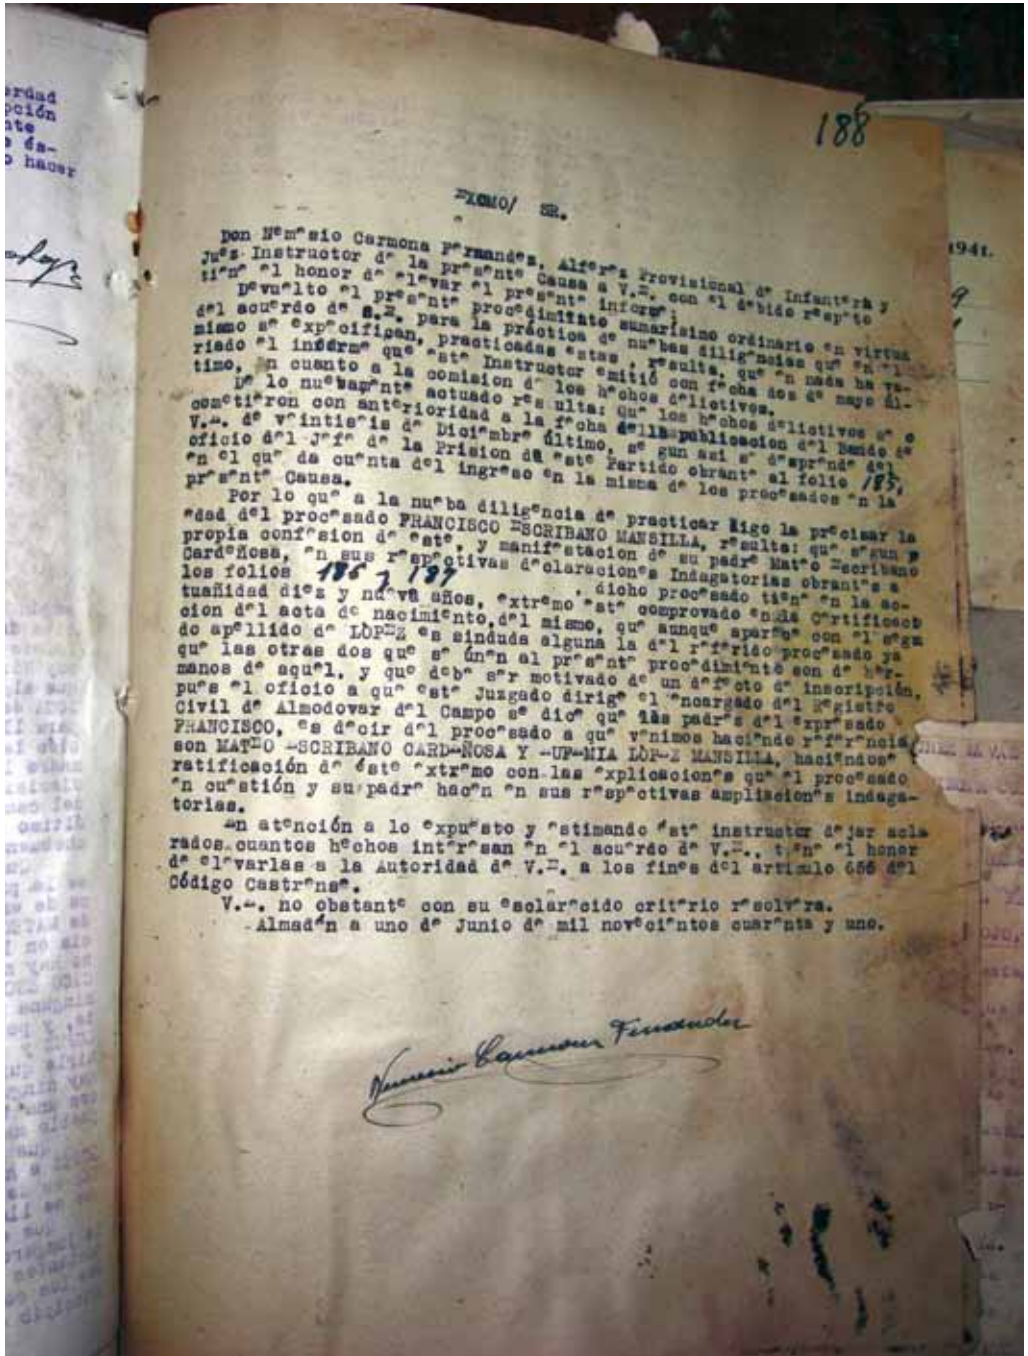 188
EXCMO/ SR.
Don Nemesio Carmona Fernandez, Alferez Provisional de Infantera y
Juez Instructor de la presente Causa a V.E. con el debido respeto
tiene el honor de elevar el presente informe;
Devuelto el presente procedimiento sumarísimo ordinario en virtua
del acuerdo de S.E. para la práctica de nuebas diligencias que en el
mismo se expecifican, practicadas estas, resulta, que en nada ha va-
riado el informe que este Instructor emitió con fecha dos de mayo úl-
timo, en cuanto a la comision de los hechos delictivos.
De lo nuevamente actuado resulta: que los hechos delictivos se c
cometieron con anterioridad a la fecha de la publicacion del Bando de
V.E. de veintiseis de Diciembre último, segun asi se desprende del
oficio del Jefe de la Prision de este Partido obrante al folio 185,
en el que da cuenta del ingreso en la misma de los procesados en la
presente Causa.
Por lo que a la nueba diligencia de practicar digo la precisar la
edad del procesado FRANCISCO ESCRIBANO MANSILLA, resulta: que segun p
propia confesion de este, y manifestacion de su padre Mateo Escribano
Cardeñosa, en sus respectivas declaraciones Indagatorias obrantes a
los folios 186 y 187, dicho procesado tiene en la ac-
tuañidad diez y nueva años, extremo este comprovado en la Certificacb
cion del acta de nacimiento, del mismo, que aunque aparece con el segu
do apellido de LOPEZ es sinduda alguna la del referido procesado ya
que las otras dos que se únen al presente procedimiento son de her-
manos de aquel, y que debe ser motivado de un defecto de inscripción,
pues el oficio a que este Juzgado dirige el encargado del Registro
Civil de Almodovar del Campo se dice que los padres del expresado
FRANCISCO, es decir del procesado a que venimos haciendo referencia,
son MATEO ESCRIBANO CARDEÑOSA Y EUFEMIA LÓPEZ MANSILLA, haciendose
ratificación de éste extremo con las explicaciones que el procesado
en cuestión y su padre hacen en sus respectivas ampliaciones indaga-
torias.
En atención a lo expuesto y estimando éste instructor dejar acla
rados cuantos hechos interesan en el acuerdo de V.E., tiene el honor
de elevarlas a la Autoridad de V.E. a los fines del articulo 656 del
Código Castrense.
V.E. no obstante con su esclarecido criterio resolvera.
Almadén a uno de Junio de mil novecientos cuarenta y uno.
Nemesio Carmona Fernandez
erdad
pción
nte
e da-
o hacer
1941.